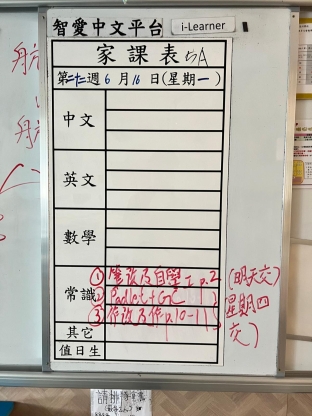 智愛中文平台
i-Learner
家課表 5A
第二十二週 6月16日(星期一)
中文
英文
數學
常識
① 堂課及自學工 p.2 (明天交)
② Padlet + GC
③ 作改及作p.10-11 星期四交)
其它
值日生